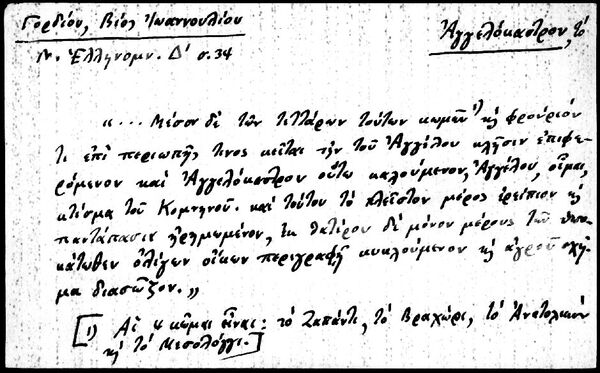 Γορδίου, Βίος Ἰωαννουλίου
Ἀγγελόκαστρον, τό
Ν. Ἑλληνομν. Δ' σ. 34
«... Μέσον δὲ τῶν τεττάρων τούτων κωμῶν¹⁾ κ̣ φρούριόν
τι ἐπὶ περιωπῆς τινος κεῖται τὴν τοῦ Ἀγγέλου κλῆσιν ἐπιφε-
ρόμενον καὶ Ἀγγελόκαστρον οὕτω καλούμενον, Ἀγγέλου, οἶμαι,
κτίσμα τοῦ Κομνηνοῦ. καὶ τούτου τὸ πλεῖστον μέρος ἐρείπιον κ̣
παντάπασιν ἠρημωμένον, ἐκ θατέρου δὲ μόνον μέρους τῶν ὑπο-
κάτωθεν ὀλίγων οἴκων περιγραφῇ κυκλούμενον κ̣ ἀγροῦ σχῆ-
μα διασῶζον.»
[1) Αἱ 4 κῶμαι εἶναι: τὸ Ζαπάντι, τὸ Βραχώρι, τὸ Ἀνατολικὸν
κ̣ τὸ Μεσολόγγι.]